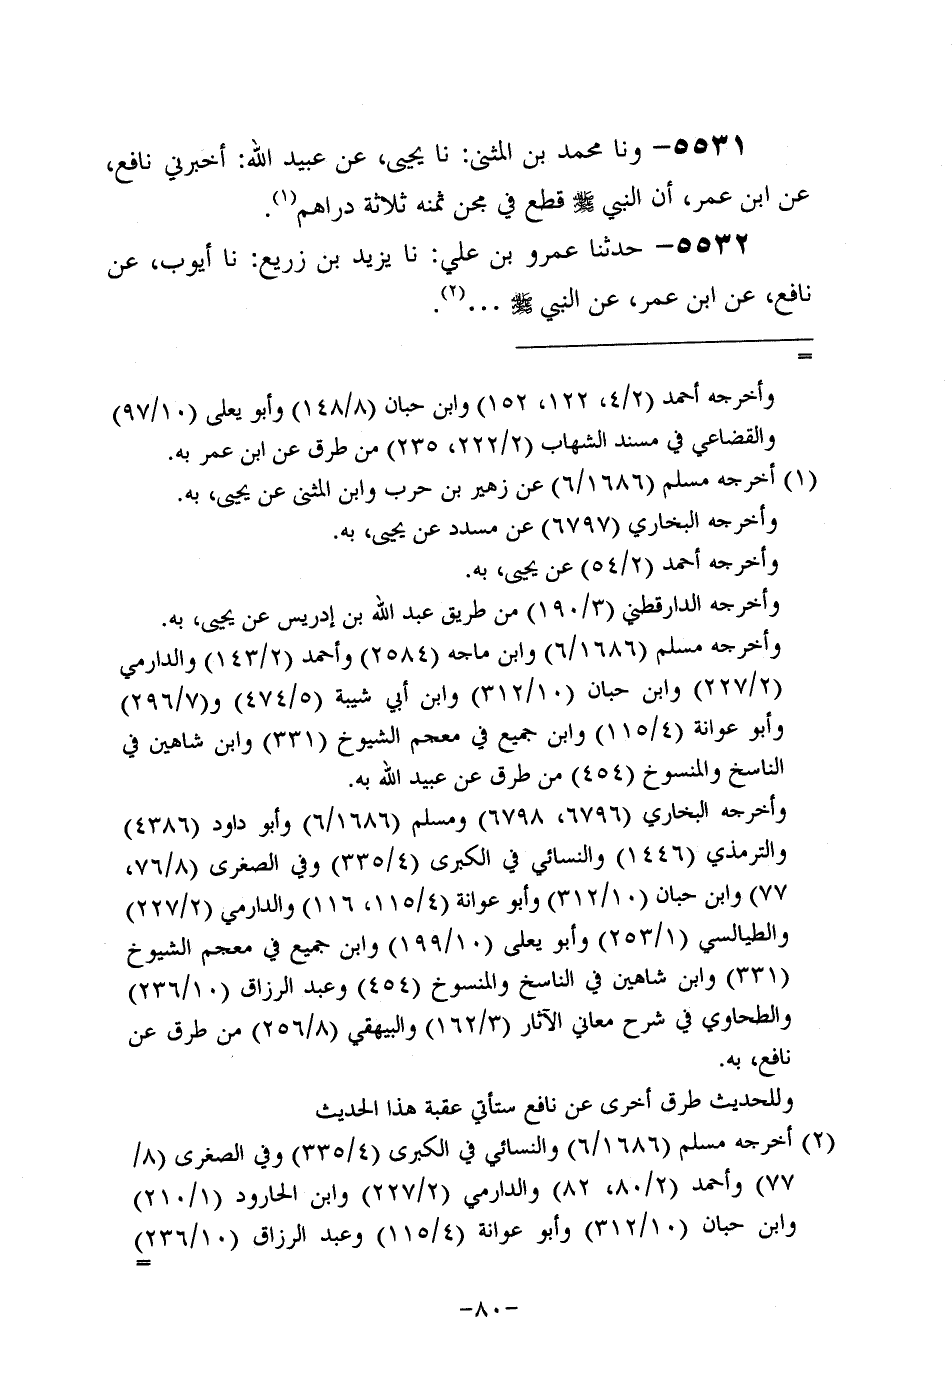 ٥٥٣١- ونا محمد بن المثنى: نا يحيى، عن عبيد الله: أخبرني نافع،
عن ابن عمر، أن النبي ﷺ قطع في مجن ثمنه ثلاثة دراهم(١).
٥٥٣٢- حدثنا عمرو بن علي: نا يزيد بن زريع: نا أيوب، عن
نافع، عن ابن عمر، عن النبي ﷺ ...(٢).
=
وأخرجه أحمد (٤/٢، ١٢٢، ١٥٢) وابن حبان (١٤٨/٨) وأبو يعلى (٩٧/١٠)
والقضاعي في مسند الشهاب (٢٢٢/٢، ٢٣٥) من طرق عن ابن عمر به.
(١) أخرجه مسلم (٦/١٦٨٦) عن زهير بن حرب وابن المثنى عن يحيى، به.
وأخرجه البخاري (٦٧٩٧) عن مسدد عن يحيى، به.
وأخرجه أحمد (٥٤/٢) عن يحيى، به.
وأخرجه الدارقطني (١٩٠/٣) من طريق عبد الله بن إدريس عن يحيى، به.
وأخرجه مسلم (٦/١٦٨٦) وابن ماجه (٢٥٨٤) وأحمد (١٤٣/٢) والدارمي
(٢٢٧/٢) وابن حبان (٣١٢/١٠) وابن أبي شيبة (٤٧٤/٥) و(٢٩٦/٧)
وأبو عوانة (١١٥/٤) وابن جميع في معجم الشيوخ (٣٣١) وابن شاهين في
الناسخ والمنسوخ (٤٥٤) من طرق عن عبيد الله به.
وأخرجه البخاري (٦٧٩٦، ٦٧٩٨) ومسلم (٦/١٦٨٦) وأبو داود (٤٣٨٦)
والترمذي (١٤٤٦) والنسائي في الكبرى (٣٣٥/٤) وفي الصغرى (٧٦/٨،
٧٧) وابن حبان (٣١٢/١٠) وأبو عوانة (١١٥/٤، ١١٦) والدارمي (٢٢٧/٢)
والطيالسي (٢٥٣/١) وأبو يعلى (١٩٩/١٠) وابن جميع في معجم الشيوخ
(٣٣١) وابن شاهين في الناسخ والمنسوخ (٤٥٤) وعبد الرزاق (٢٣٦/١٠)
والطحاوي في شرح معاني الآثار (١٦٢/٣) والبيهقي (٢٥٦/٨) من طرق عن
نافع، به.
وللحديث طرق أخرى عن نافع ستأتي عقبة هذا الحديث
(٢) أخرجه مسلم (٦/١٦٨٦) والنسائي في الكبرى (٣٣٥/٤) وفي الصغرى (٨/
٧٧) وأحمد (٨٠/٢، ٨٢) والدارمي (٢٢٧/٢) وابن الحارود (٢١٠/١)
وابن حبان (٣١٢/١٠) وأبو عوانة (١١٥/٤) وعبد الرزاق (٢٣٦/١٠)
=
-٨٠-